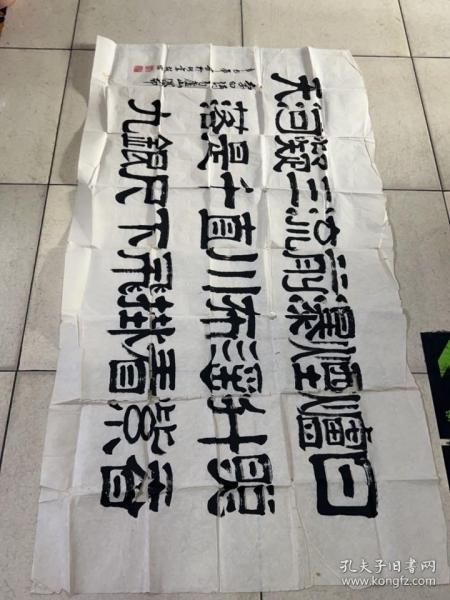 日照香
爐生紫
煙遥看
瀑布掛
前川飛
流直下
三千尺
疑是銀
河落九
天
李白詩望廬山瀑布
孔夫子旧书网
www.kongfz.com